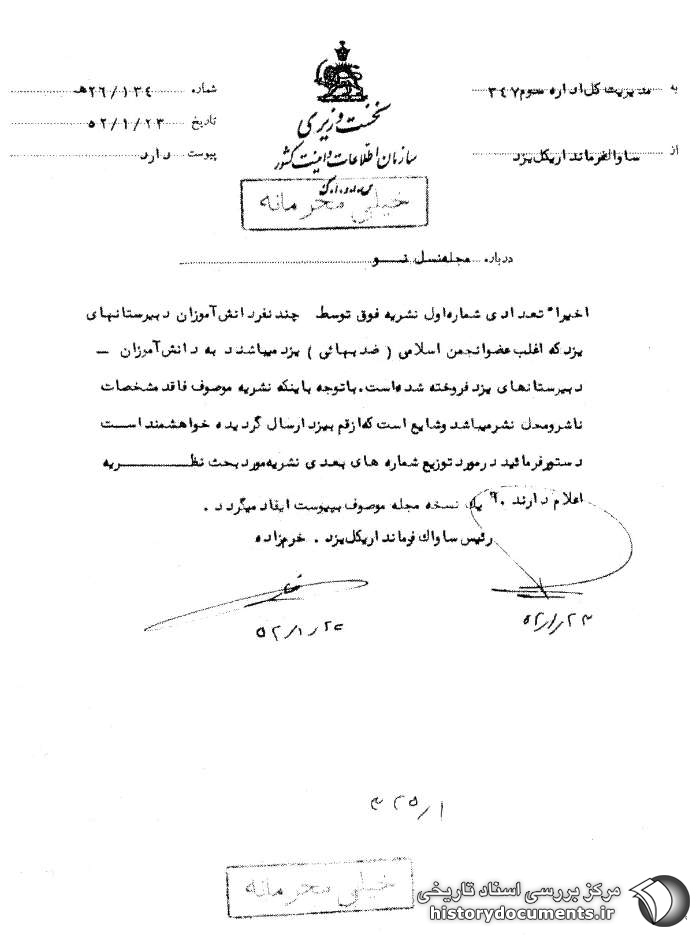 به مدیریت کل اداره سوم ۳٤۷
شماره ۲٦/۱۳٤هـ
نخست وزیری
تاریخ ۵۲/۱/۲۳
سازمان اطلاعات و امنیت کشور
از ساواک فرمانداریکل یزد
پیوست دارد
س.ا.و.ا.ک
خیلی محرمانه
درباره مجله نسل نــو
اخیرا" تعدادی شماره اول نشریه فوق توسط چند نفر دانش آموزان دبیرستانهای
یزد که اغلب عضو انجمن اسلامی ( ضد بهائی ) یزد میباشند به دانش آموزان –
دبیرستانهای یزد فروخته شده است. با توجه باینکه نشریه موصوف فاقد مشخصات
ناشر و محل نشر میباشد و شایع است که از قم بیزد ارسال گردیده خواهشمند اســت
دستور فرمائید در مورد توزیع شماره های بعدی نشریه مورد بحث نظـــریه
اعلام دارند . یک نسخه مجله موصوف بپیوست ایفاد میگردد .
رئیس ساواک فرمانداریکل یزد . خرم زاده
۵۲/۱/۲۳
۵۲/۱/۲۳
۳۲۵/۱
خیلی محرمانه
مرکز بررسی اسناد تاریخی
historydocuments.ir